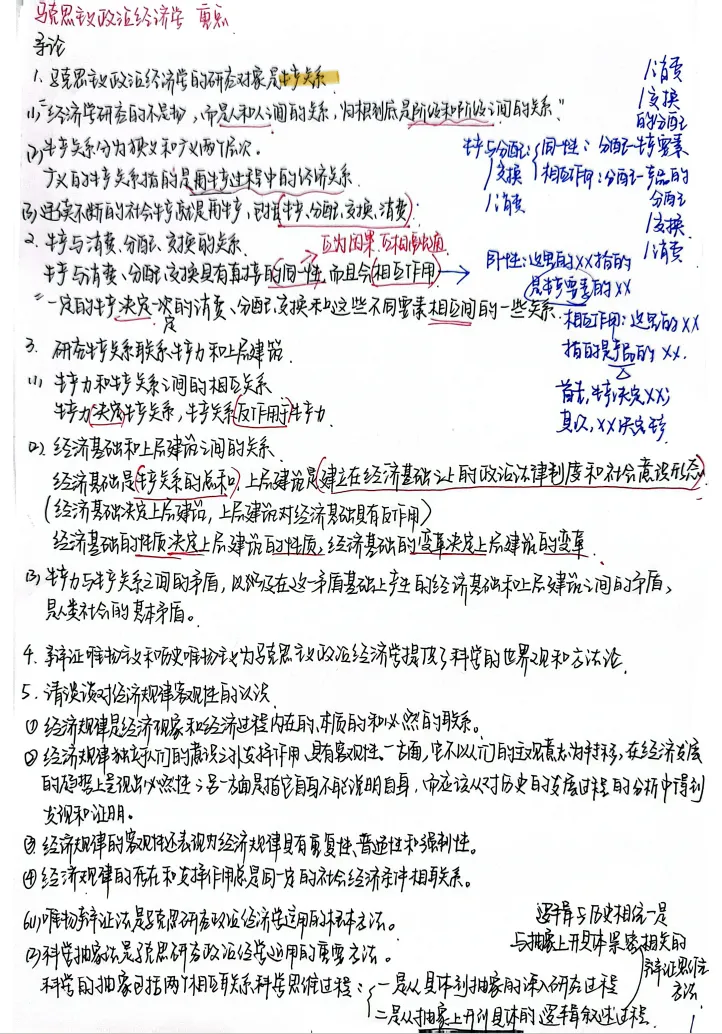 马克思主义政治经济学 重点
导论
1. 马克思主义政治经济学的研究对象是生产关系
(1)“经济学研究的不是物，而是人和人之间的关系，归根到底是阶级和阶级之间的关系”
(2) 生产关系分为狭义和广义两个层次。
广义的生产关系指的是再生产过程中的经济关系
(3) 连续不断的社会生产就是再生产，包括生产、分配、交换、消费
2. 生产与消费、分配、交换的关系
互为因果、互相贯通
生产与消费、分配、交换具有直接的同一性，而且会相互作用
“一定的生产决定一定的消费、分配、交换和这些不同要素相互间的一些关系
生产与分配
/交换
/消费
同一性：分配—生产要素
相互作用：分配—产品的
/消费
/交换
的分配
分配
/交换
/消费
同一性：这里的XX指的
是生产要素的XX
相互作用：这里的XX
指的是产品的XX.
首先，生产决定XX；
其次，XX决定生产
3. 研究生产关系联系生产力和上层建筑
(1) 生产力和生产关系之间的相互关系
生产力决定生产关系，生产关系反作用于生产力
(2) 经济基础和上层建筑之间的关系
经济基础是生产关系的总和，上层建筑是建立在经济基础之上的政治法律制度和社会意识形态
(经济基础决定上层建筑，上层建筑对经济基础具有反作用)
经济基础的性质决定上层建筑的性质，经济基础的变革决定上层建筑的变革
(3) 生产力与生产关系之间的矛盾，以及在这一矛盾基础上产生的经济基础和上层建筑之间的矛盾，
是人类社会的基本矛盾。
4. 辩证唯物主义和历史唯物主义为马克思主义政治经济学提供了科学的世界观和方法论
5. 请谈谈对经济规律客观性的认识
① 经济规律是经济现象和经济过程内在的、本质的和必然的联系。
② 经济规律独立于人们的意识之外发挥作用，具有客观性。一方面，它不以人们的主观意志为转移，在经济发展
的趋势上呈现出必然性；另一方面是指它自身不能说明自身，而应该从对历史的发展过程的分析中得到
发现和证明。
③ 经济规律的客观性还表现为经济规律具有重复性、普遍性和强制性。
④ 经济规律的存在和发挥作用总是同一定的社会经济条件相联系。
6(1) 唯物辩证法是马克思研究政治经济学运用的根本方法。
(2) 科学抽象法是马克思研究政治经济学运用的重要方法。
科学的抽象包括两个相互联系科学思维过程：
一是从具体到抽象的深入研究过程
二是从抽象上升到具体的逻辑叙述过程.
逻辑与历史相统一是
与抽象上升具体紧密相关的
辩证思维
方法